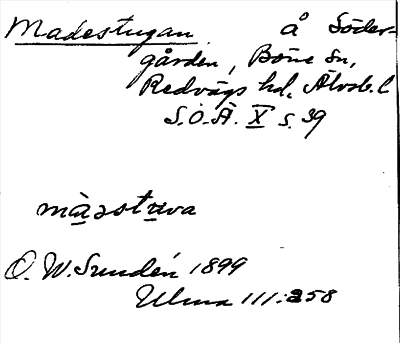 Madestugan å Söder-
gården, Böne Sn,
Redvägs hd, Älvsb. l
S.O.Ä. X s. 39
màəstuva
O. W. Sundén 1899
Ulma 111:258